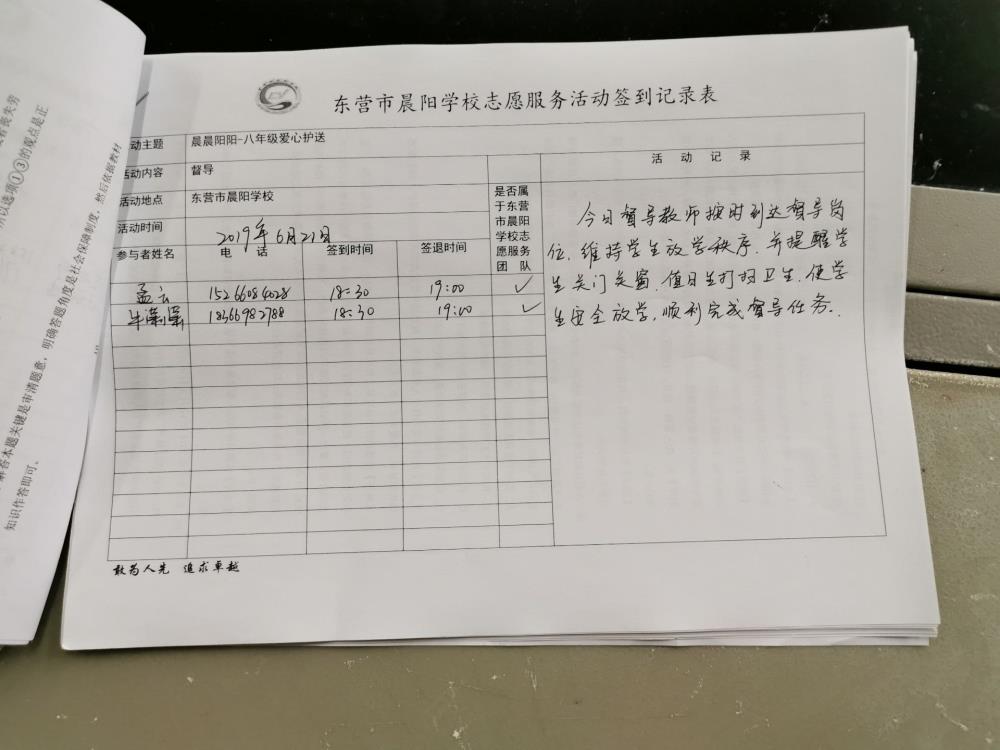 东营市晨阳学校志愿服务活动签到记录表
动主题 晨晨阳阳-八年级爱心护送
活动内容 督导
活动地点 东营市晨阳学校
活动时间 2019年6月21日
参与者姓名 电 话 签到时间 签退时间
是否属
于东营
市晨阳
学校志
愿服务
团 队
孟云 15266084028 18:30 19:00 ✓
牛潇潇 18366982788 18:30 19:00 ✓
活 动 记 录
今日督导教师按时到达督导岗
位,维持学生放学秩序,并提醒学
生关门关窗,值日生打扫卫生,使学
生安全放学,顺利完成督导任务.
敢为人先 追求卓越
所以选项①③的观点是正
解答本题关键是审清题意,明确答题角度是社会保障制度,然后依据教材
知识作答即可。